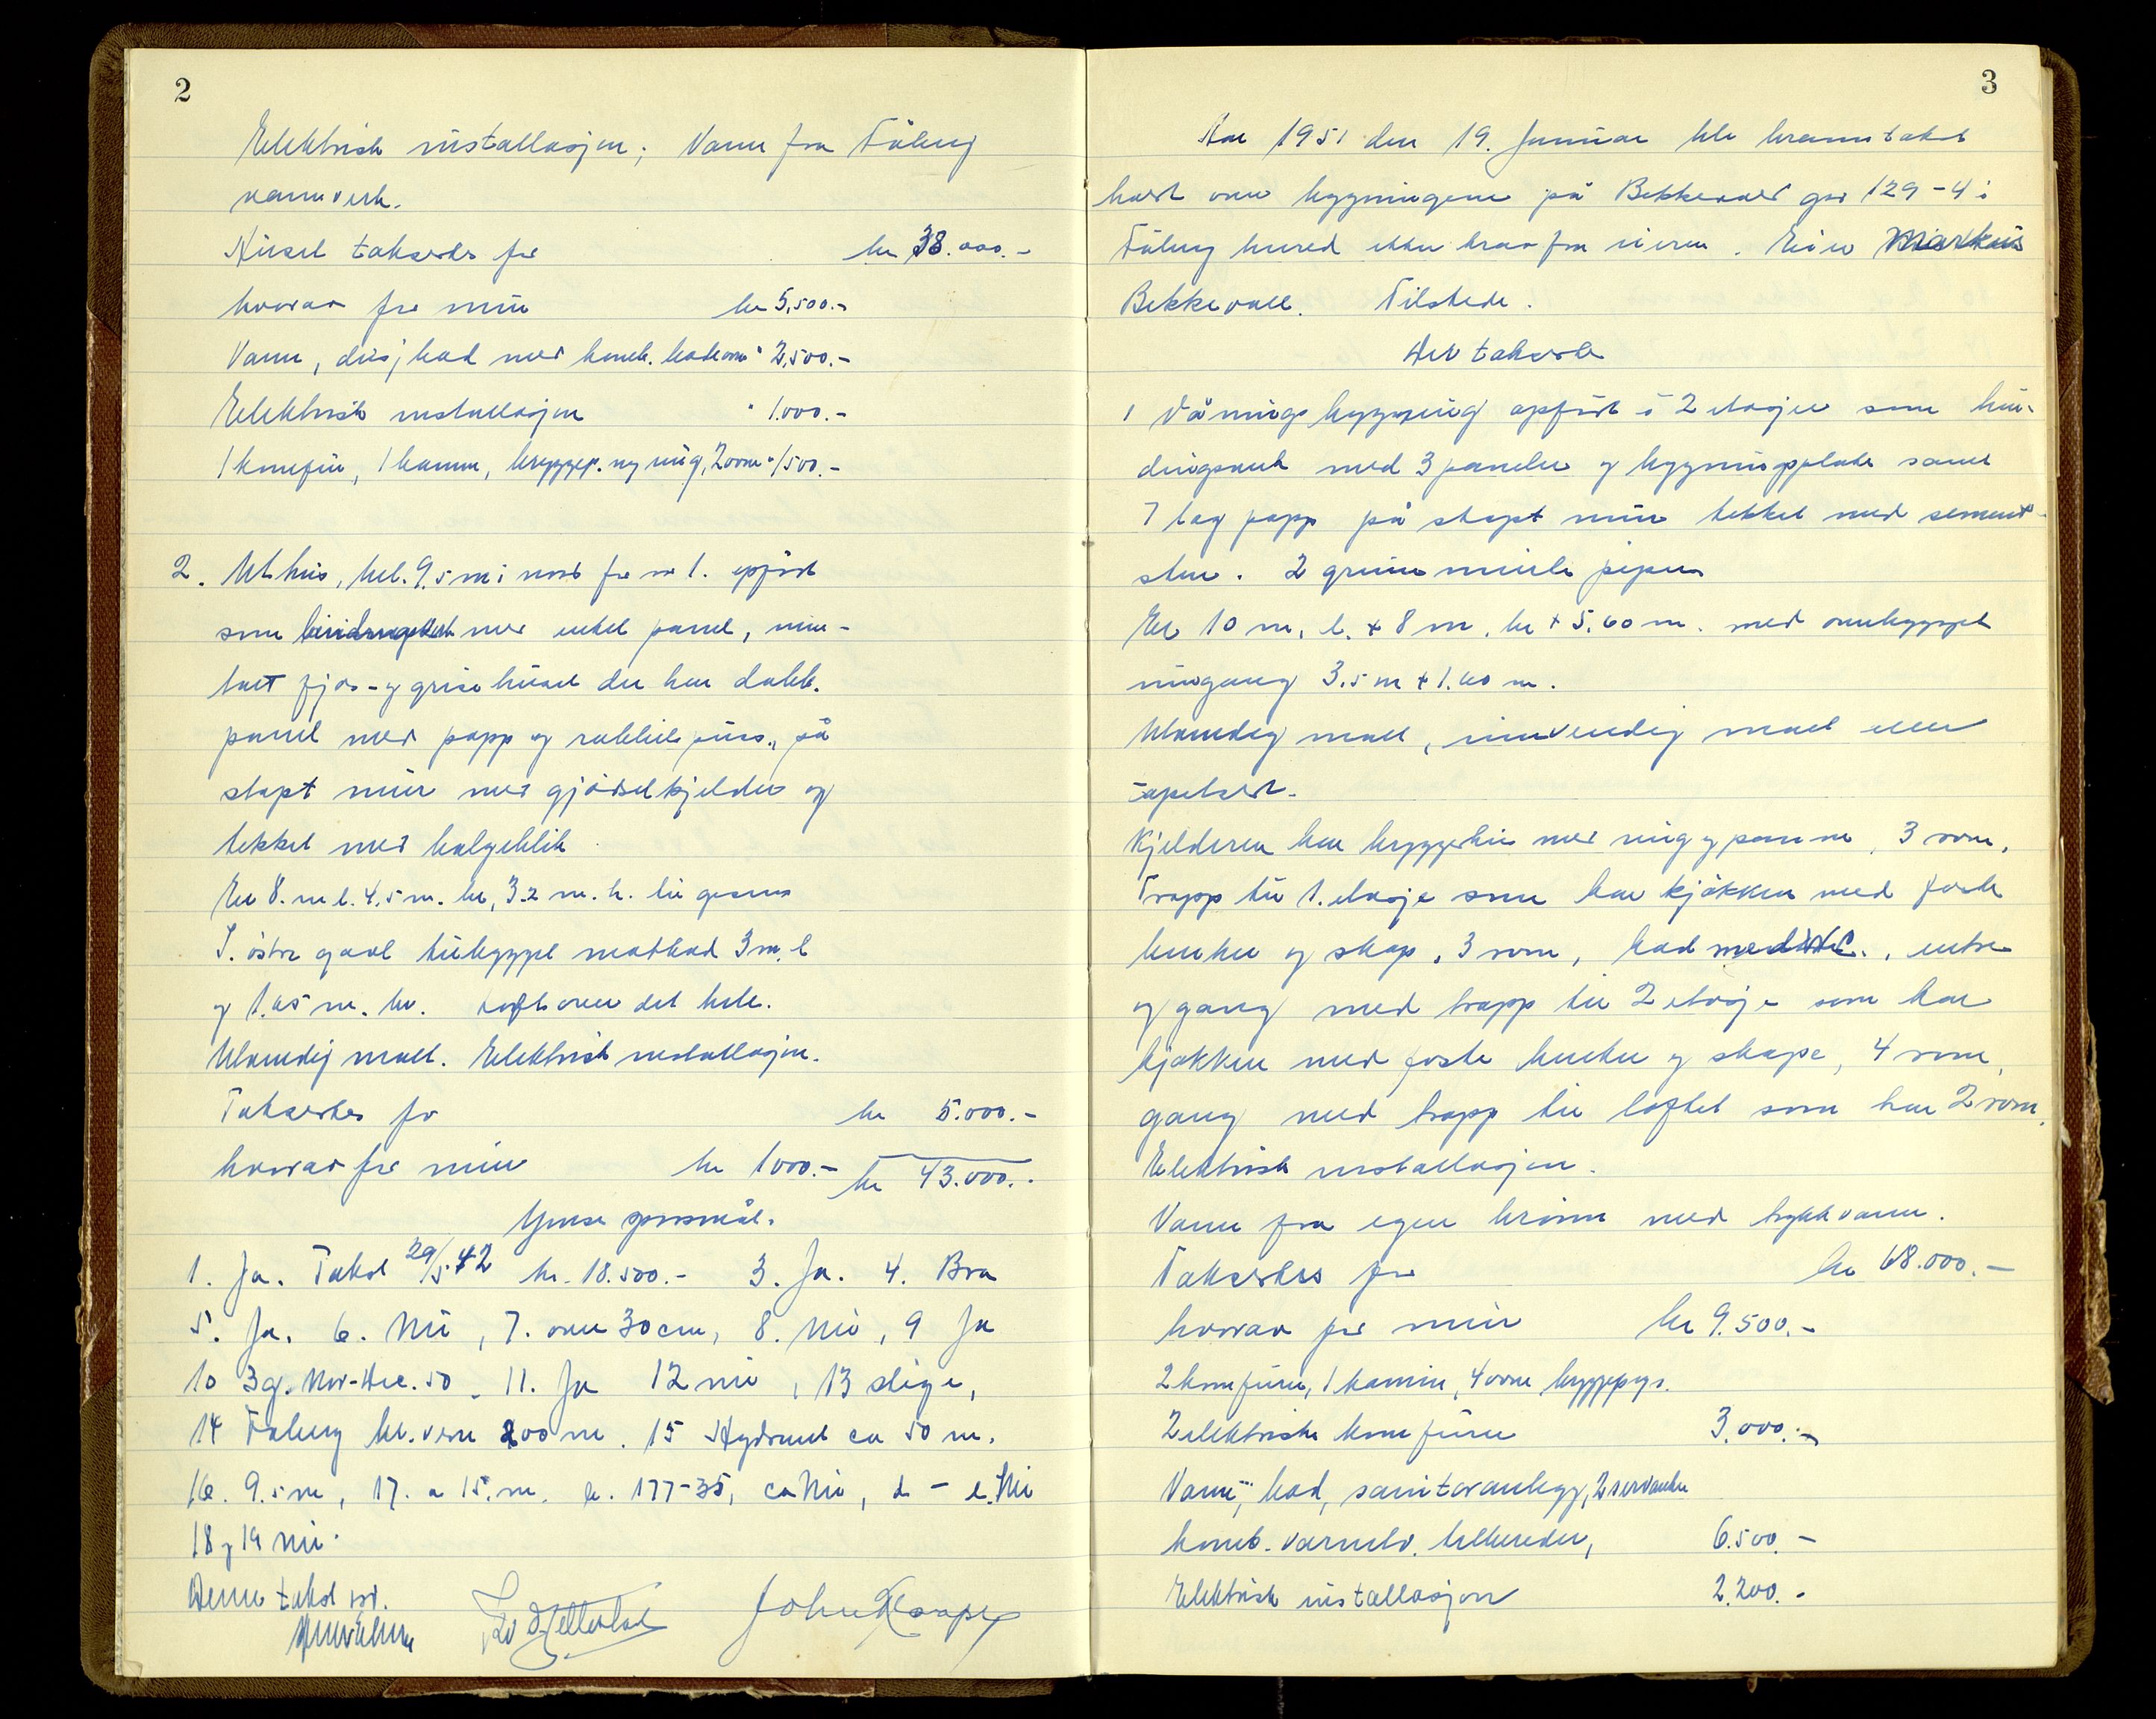 2
Elektrisk installasjon; Vann fra Fåberg
vannverk.
Huset takseres for kr 38.000.-
hvorav for mur kr 5,500.-
Vann, dusjbad med komb. badeovn " 2,500.-
Elektrisk installasjon " 1.000.-
1 komfür, 1 kamin, bryggep. og ring, 2 ovne " 1500.-
2. Uthus, bel. 9.5 m i nord for nr 1. opført
som bindingsverk med enkel panel, unn-
tatt fjøs- og grisehuset der har dobb.
panel med papp og rabbitspuss, på
støpt mur med gjødselkjelder og
tekket med bølgeblik
Er 8. m l. 4,5 m. br, 3.2 m. h. til gesims
I. østre gavl tilbygget matbod 3 m. l
og 1.65 m. br. Loft over det hele.
Utvendig malt. Elektrisk installasjon.
Takseres for kr 5.000.-
hvorav for mur kr 1000.- kr 43.000.-
Ymse spørsmål.
1. Ja. Takst 29/5.42 kr. 18.500.- 3. Ja. 4. Bra
5. Ja. 6. Nei, 7. over 30 cm, 8. Nei, 9 Ja
10 3g. Nov-Dec. 50. 11. Ja 12 nei, 13 stige,
14 Fåberg br.vern 200 m. 15 Hydrant ca 50 m.
16. 9.5 m, 17. a 15. m. b. 177-35, c Nei, d - e. Nei
18 og 19 nei.
Denne takst
John Skarpe
3
Aar 1951 den 19. Januar ble branntakst
holdt over bygningene på Bekkevold gnr 129-4 i
Fåberg herred etter krav fra eieren. Eier Markus
Bekkevoll. Tilstede.
Det takseres
1 Våningsbygning opført i 2 etasjer som bin-
dingsverk med 3 paneler og bygningsplate samt
7 lag papp på støpt mur tekket med sement-
sten. 2 grunnmurte piper
Er 10 m. l. + 8 m. br + 5.60 m. med ombygget
inngang 3.5 m + 1.60 m.
Utvendig malt, innvendig malt eller
tapetsert.
Kjelderen har bryggerhus med ring og panne, 3 rom.
Trapp til 1. etasje som har kjøkken med faste
benker og skap, 3 rom, bad med W.C., entre
og gang med trapp til 2 etasje som har
kjøkken med faste benker og skape, 4 rom,
gang med trapp til loftet som har 2 rom.
Elektrisk installasjon.
Vann fra egen brønn med trykkvann.
Takseres for kr 68.000.-
hvorav for mur kr 9.500.-
2 komfürer, 1 kamin, 4 ovne
2 elektriske komfürer 3.000.-
Vann, bad, sanitæranlegg, 2 servanter
komb. varmtv. beholder, 6.500.-
Elektrisk installasjon 2.200.-